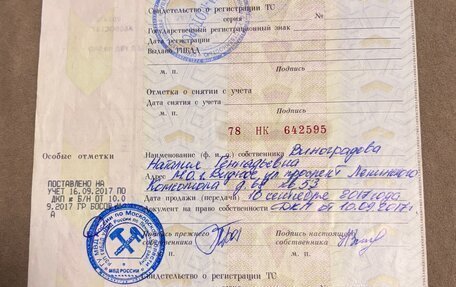 Свидетельство о регистрации ТС
серия №
Государственный регистрационный знак
Дата регистрации
Выдано ГИБДД
М. П. Подпись
Отметка о снятии с учета
Дата снятия с учета
М. П. Подпись
78 НК 642595
Особые отметки
Наименование (ф. и. о.) собственника Виноградова
Наталия Геннадьевна
Адрес М.О. г. Видное, ул проспект Ленинского
Комсомола д. 68 кв. 53
Дата продажи (передачи) 10 сентября 2017 года
Документ на право собственности ДКП от 10.09.2017 г
ПОСТАВЛЕНО НА
УЧЕТ 16.09.2017 ПО
ДКП № Б/Н ОТ 10.0
9.2017 ГР БОСОВ
Подпись прежнего собственника
Подпись настоящего собственника
МВД РОССИИ
М. П. М. П.
Свидетельство о регистрации ТС
серия №